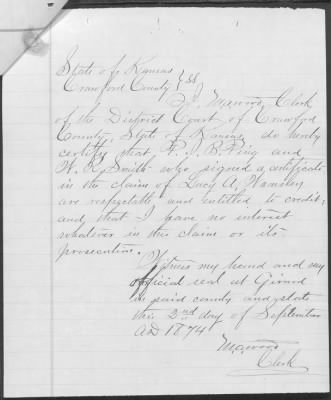 State of Kansas
Crawford County } SS
I, M. A. Wood, Clerk
of the District Court of Crawford
County, State of Kansas do hereby
certify that R. J. B. King and
W. R. Smith who signed a certificate
in the claim of Lucy A. Hamsley
are respectable and entitled to credit,
and that I have no interest
whatever in this claim or its
prosecution.
Witness my hand and my
official seal at Girard
in said county and state
this 2nd day of September
AD 1874
M. A. Wood
Clerk